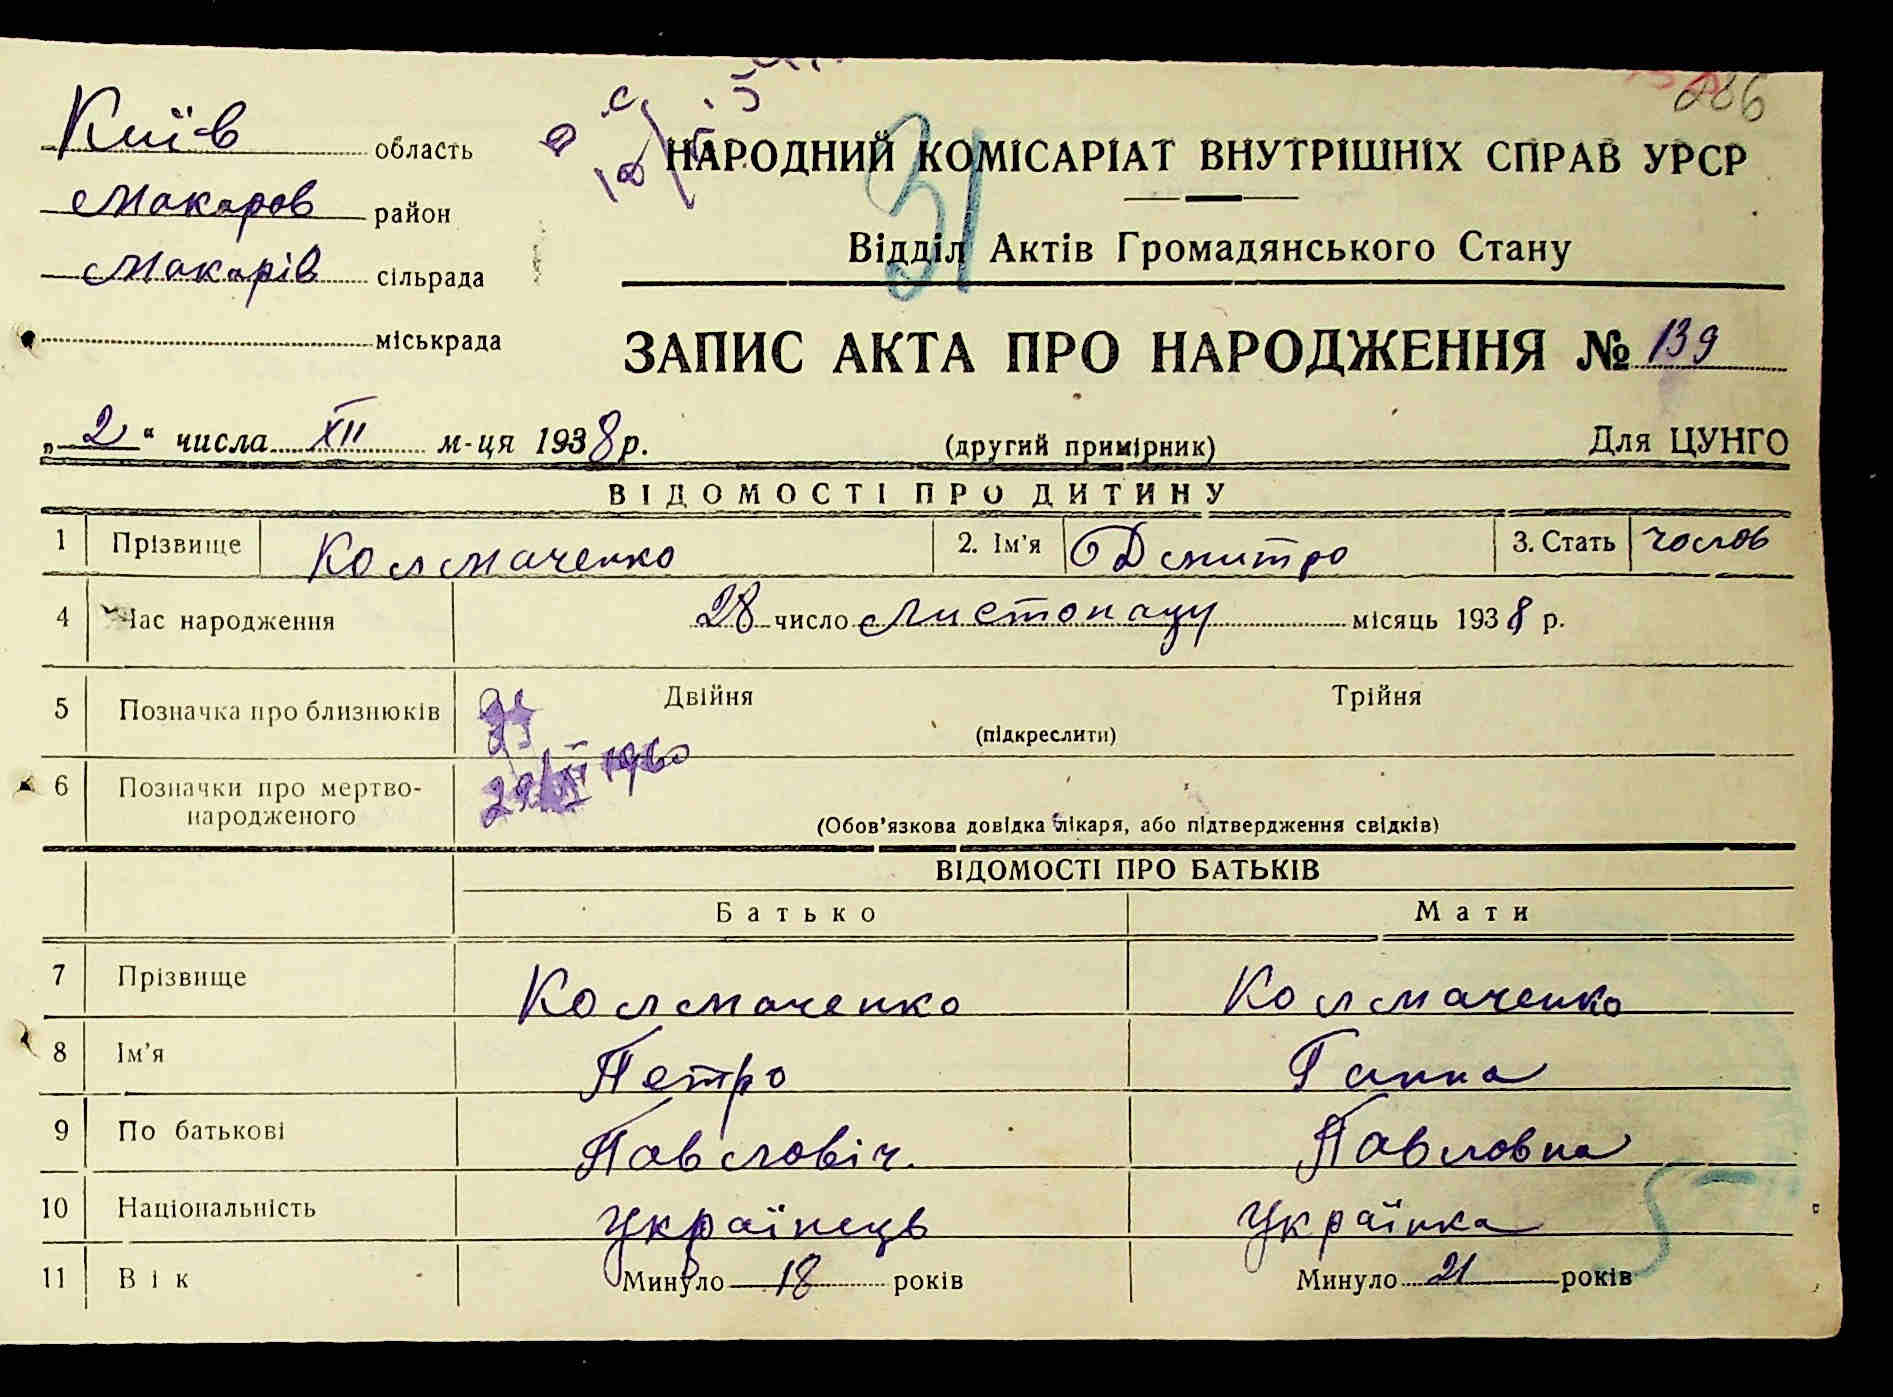 286
Київ область
НАРОДНИЙ КОМІСАРІАТ ВНУТРІШНІХ СПРАВ УРСР
31
Макаров район
Макарів сільрада
Відділ Актів Громадянського Стану
міськрада
ЗАПИС АКТА ПРО НАРОДЖЕННЯ № 139
„ 2 “ числа XII м-ця 1938 р. (другий примірник) Для ЦУНГО
ВІДОМОСТІ ПРО ДИТИНУ
1 Прізвище Колмаченко 2. Ім'я Дмитро 3. Стать чолов
4 Час народження 28 число листопаду місяць 1938 р.
5 Позначка про близнюків Двійня Трійня
(підкреслити)
29/XI 1960
6 Позначки про мертво-
народженого
(Обов'язкова довідка лікаря, або підтвердження свідків)
ВІДОМОСТІ ПРО БАТЬКІВ
Батько Мати
7 Прізвище Колмаченко Колмаченко
8 Ім'я Петро Ганна
9 По батькові Павловіч. Павловна
10 Національність українець українка
11 Вік Минуло 18 років Минуло 21 років